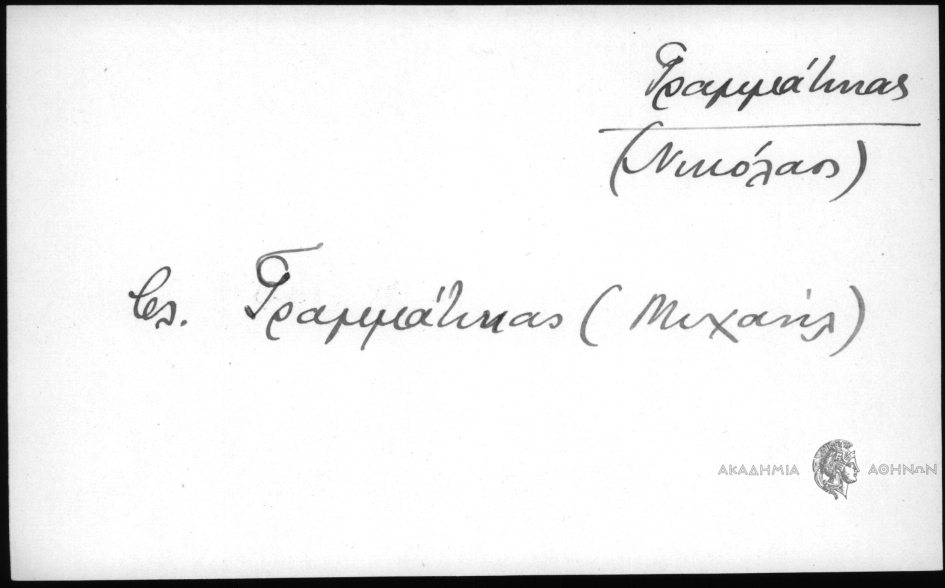 Γραμμάτικας
(Νικόλαος)
βλ. Γραμμάτικας (Μιχαήλ)
ΑΚΑΔΗΜΙΑ ΑΘΗΝΩΝ